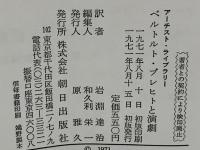 著者との契約により検印廃止
アーチスト・ライブラリー
ベルトルト・ブレヒトと演劇
一九七一年八月十日 初版印刷
一九七一年八月十五日 初版発行
定価五五〇円
訳者 岩淵達治
編集人 和久利栄一
発行人 原雅久
発行所 株式会社 朝日出版社
102 東京都千代田区飯田橋一ノ七ノ九
©1971